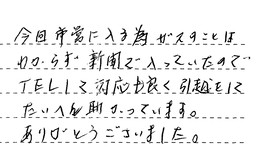 今回市営に入る為ガスのことは
わからず新聞で入っていたので
TELして対応も良く引越をして
たいへん助かっています。
ありがとうございました。